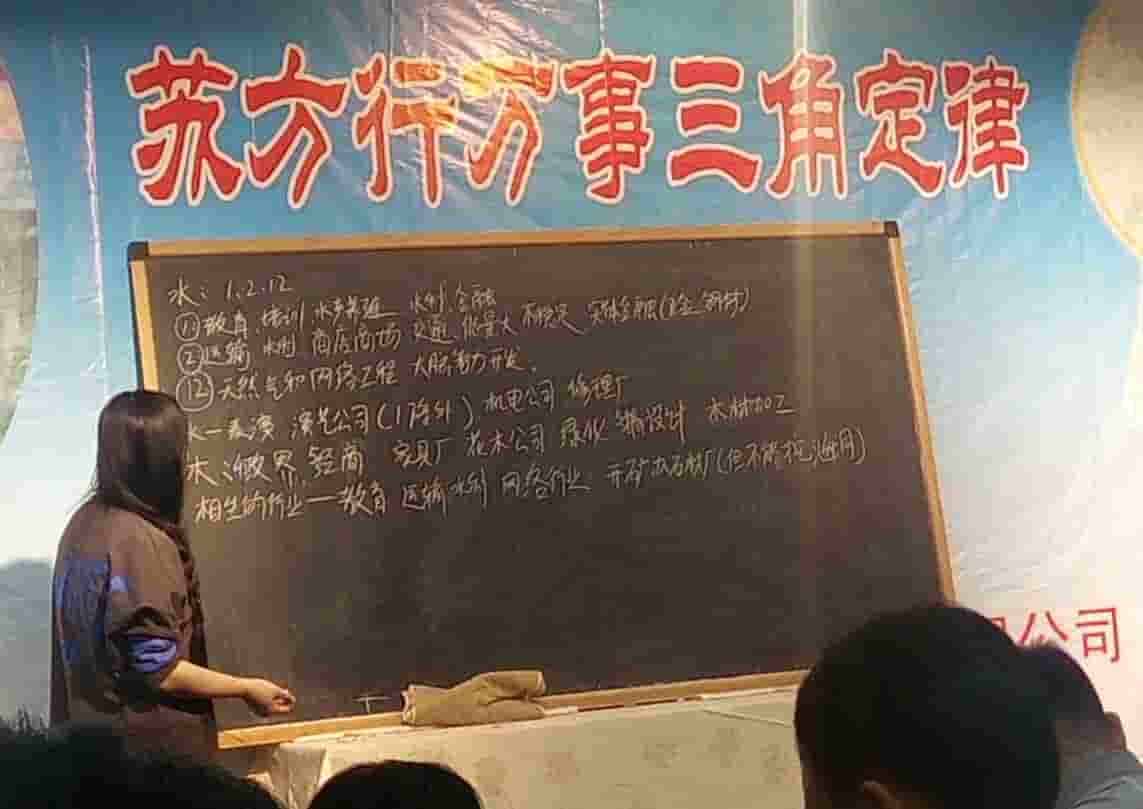 苏方行万事三角定律
水：1、2、12
① 教育 培训 水产养殖 水利 金融
② 运输 水利 商店商场 交通 能量大 不稳定 实体金融(
⑫ 天然气和网络工程 大脑智力开发。
水一表演 演艺公司(1除外) 机电公司 修理厂
木：政界 经商 家具厂 花木公司 绿化 设计 木材加工
相生的行业一教育 运输 水利 网络行业 开矿 石材厂(但不能
公司